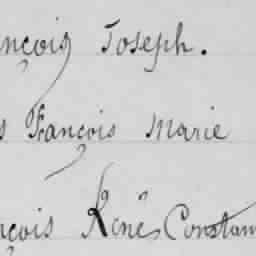 nçois Joseph.
s François Marie
nçois René Constan